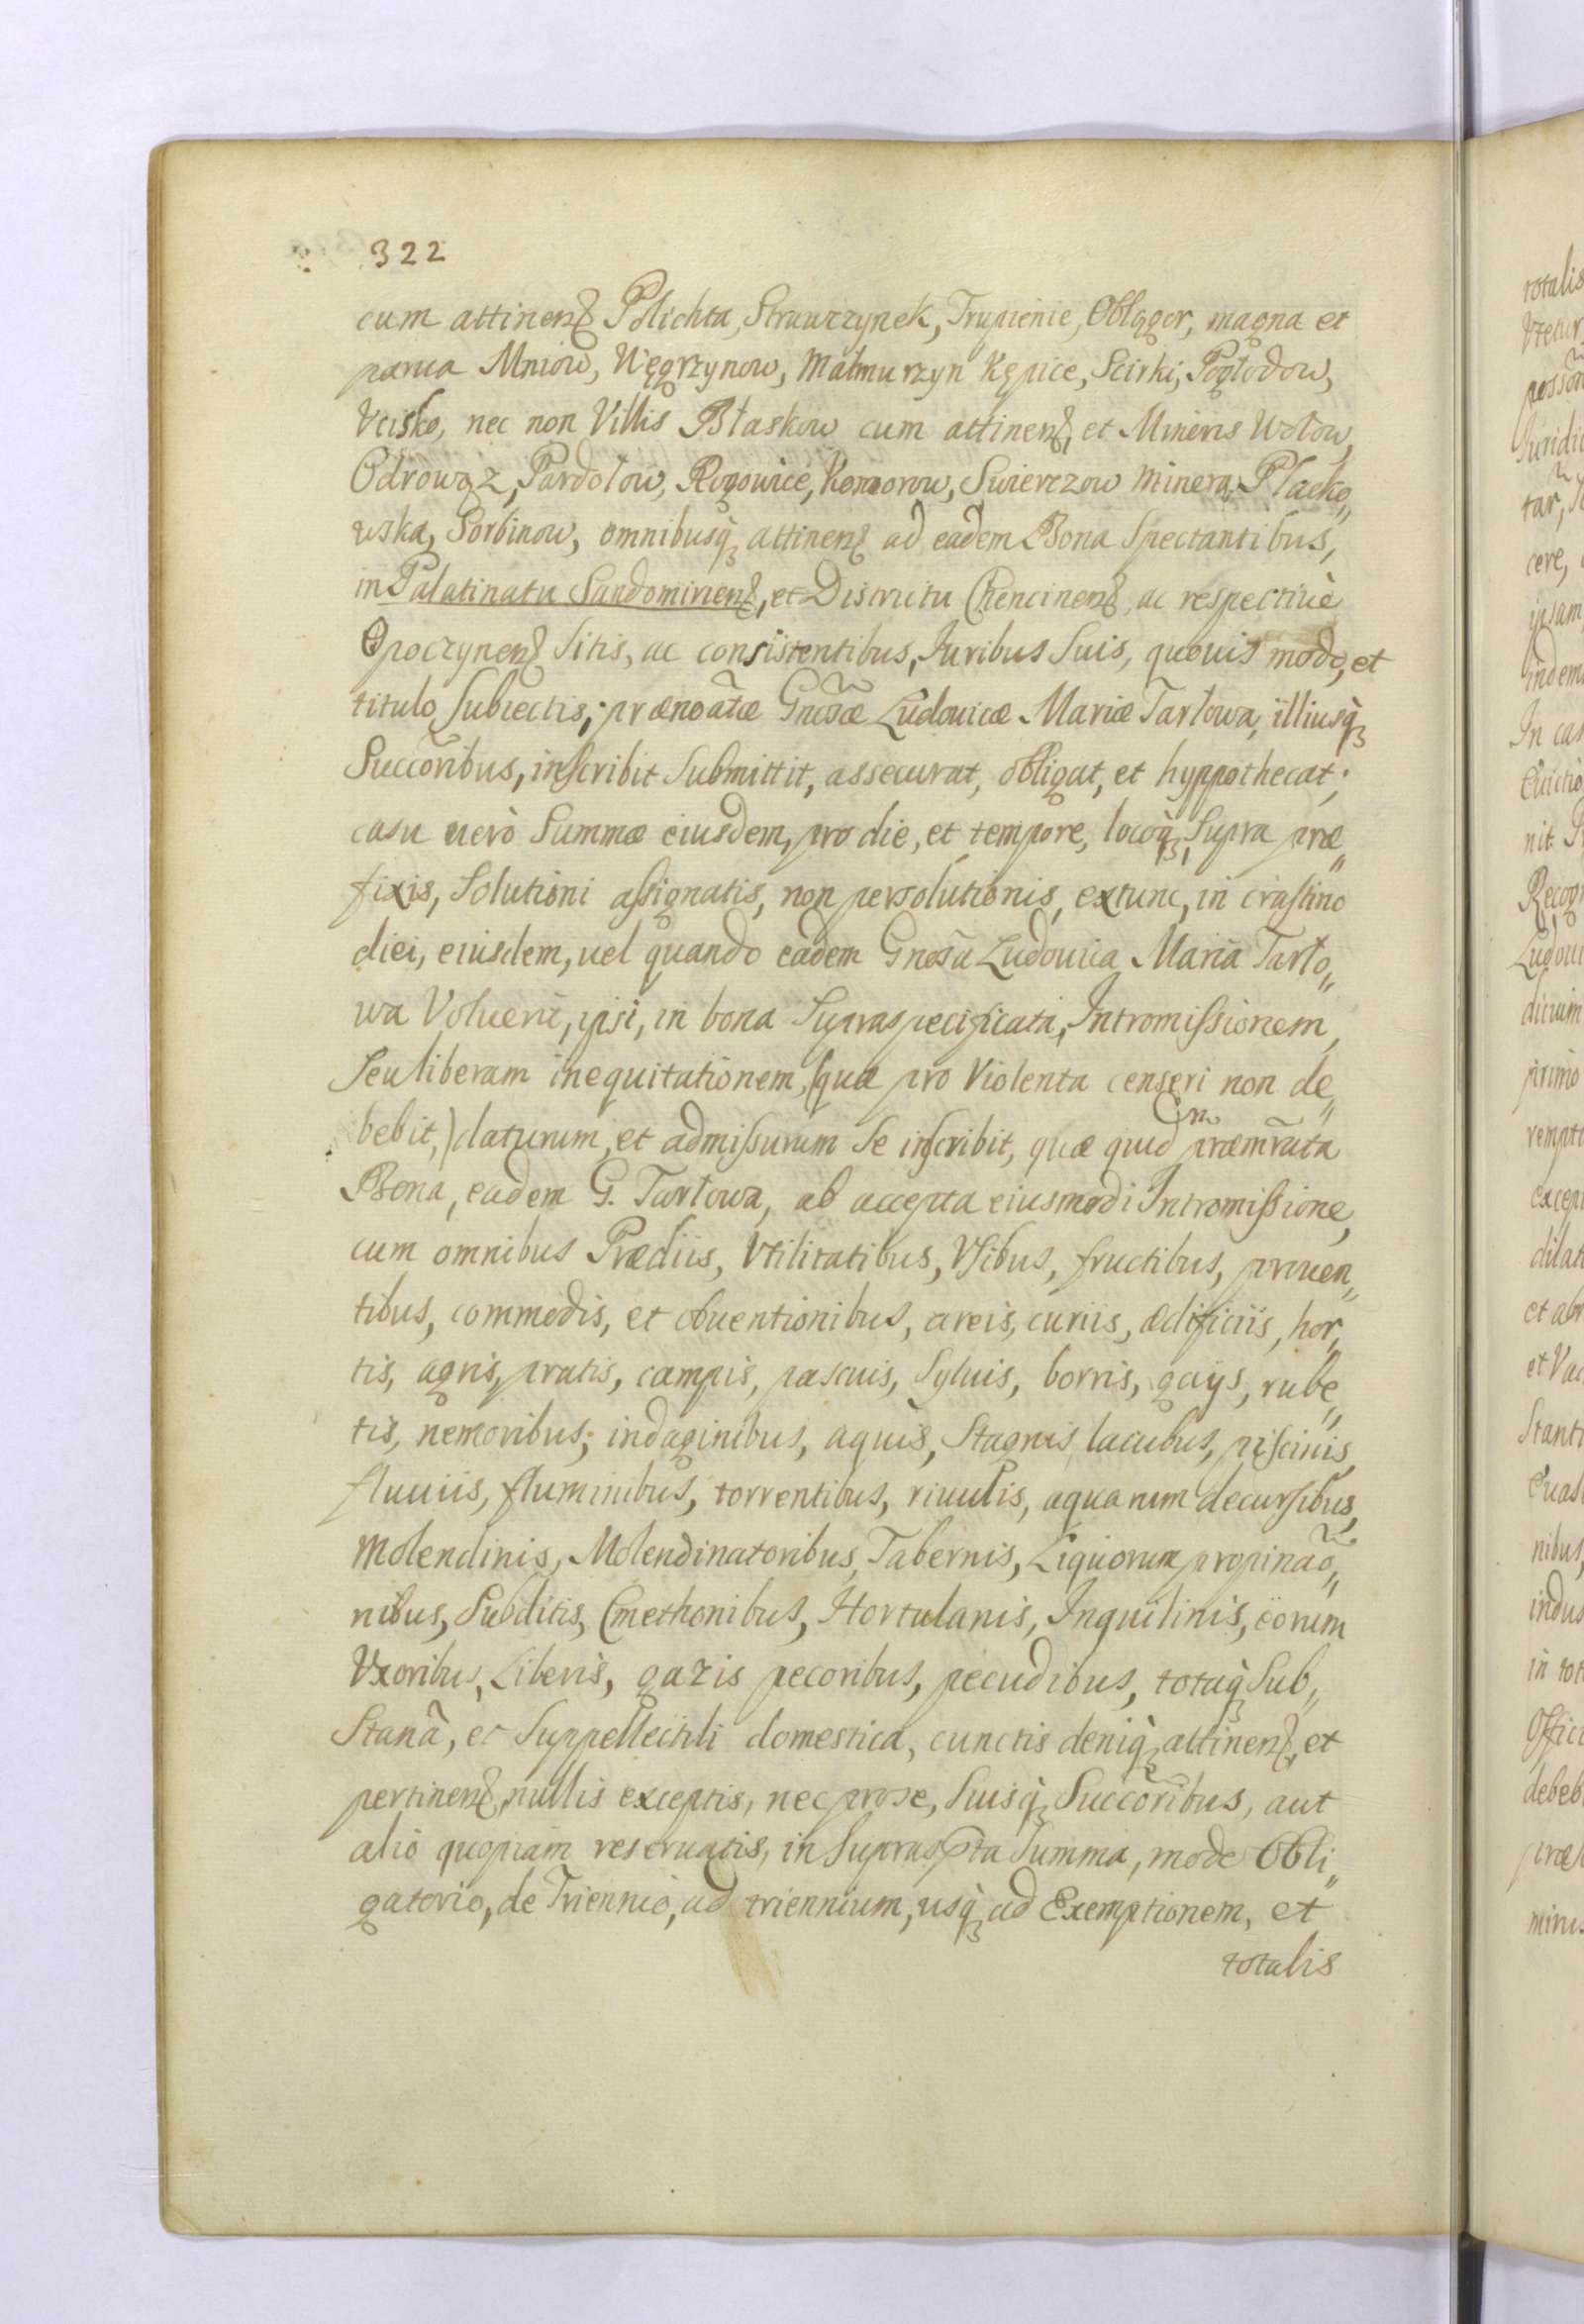 322
cum attinenȝ Polichta, Strawczynek, Trupienie, Oblągor, magna et
parua Mniow, Węgrzynow, Malmurzyn Kępice, Scirki, Pogłodow,
Vcisko, nec non Villis Błaskow cum attinenȝ, et Mineris Wołow,
Odrowąz, Pardołow, Rogowice, Komorow, Swierczow Minera Placko„
wska, Sorbinow, omnibusq́ȝ attinenȝ ad eadem Bona Spectantibus,
in Palatinatu Sandomirienȝ, et Districtu Chencinenȝ, ac respectiuè
Opoczynenȝ Sitis, ac consistentibus, Iuribus Suis, quouis modo, et
titulo Subiectis; prænoãtæ Gnosæ Ludouicæ Mariæ Tarłowa, illiusq́ȝ
Succoribus, inscribit Submittit, assecurat, obligat, et hyppothecat;
casu uerò Summæ eiusdem, pro die, et tempore, locoq́ȝ, Supra præ„
fixis, Solutioni assignatis, non persolutionis, extunc, in crastino
diei, eiusdem, uel quando eadem Gnosa Ludouica Maria Tarło„
wa Voluerit, ipsi, in bona Supraspecificata, Intromissionem,
Seu liberam inequitationem, (quæ pro Violenta censeri non de„
bebit,) daturum, et admissurum Se inscribit, quæ quid præmr̃ata
Bona, eadem G. Tarłowa, ab accepta eiusmodi Intromissione,
cum omnibus Prædiis, Vtilitatibus, Vsibus, fructibus, prouen„
tibus, commodis, et obuentionibus, areis, curiis, ædificiis, hor„
tis, agris, pratis, campis, pascuis, Syluis, borris, gaijs, rube„
tis, nemoribus, indaginibus, aquis, Stagnis, lacubus, piscinis,
fluuiis, fluminibus, torrentibus, riuulis, aquarum decursibus,
Molendinis, Molendinatoribus, Tabernis, Liquorum propinaõ„
nibus, Subditis, Cmethonibus, Hortulanis, Inquilinis, eorum
Vxoribus, Liberis, gazis pecoribus, pecudibus, totaq́ȝ Sub„
Stanã, et Suppellectili domestica, cunctis deniq́ȝ attinenȝ, et
pertinenȝ, nullis exceptis, nec pro se, Suisq́ȝ Succoribus, aut
alio quopiam reseruatis, in Suprasp̃ta Summa, modo Obli„
gatorio, de Triennio, ad triennium, usq́ȝ ad Exemptionem, et
totalis